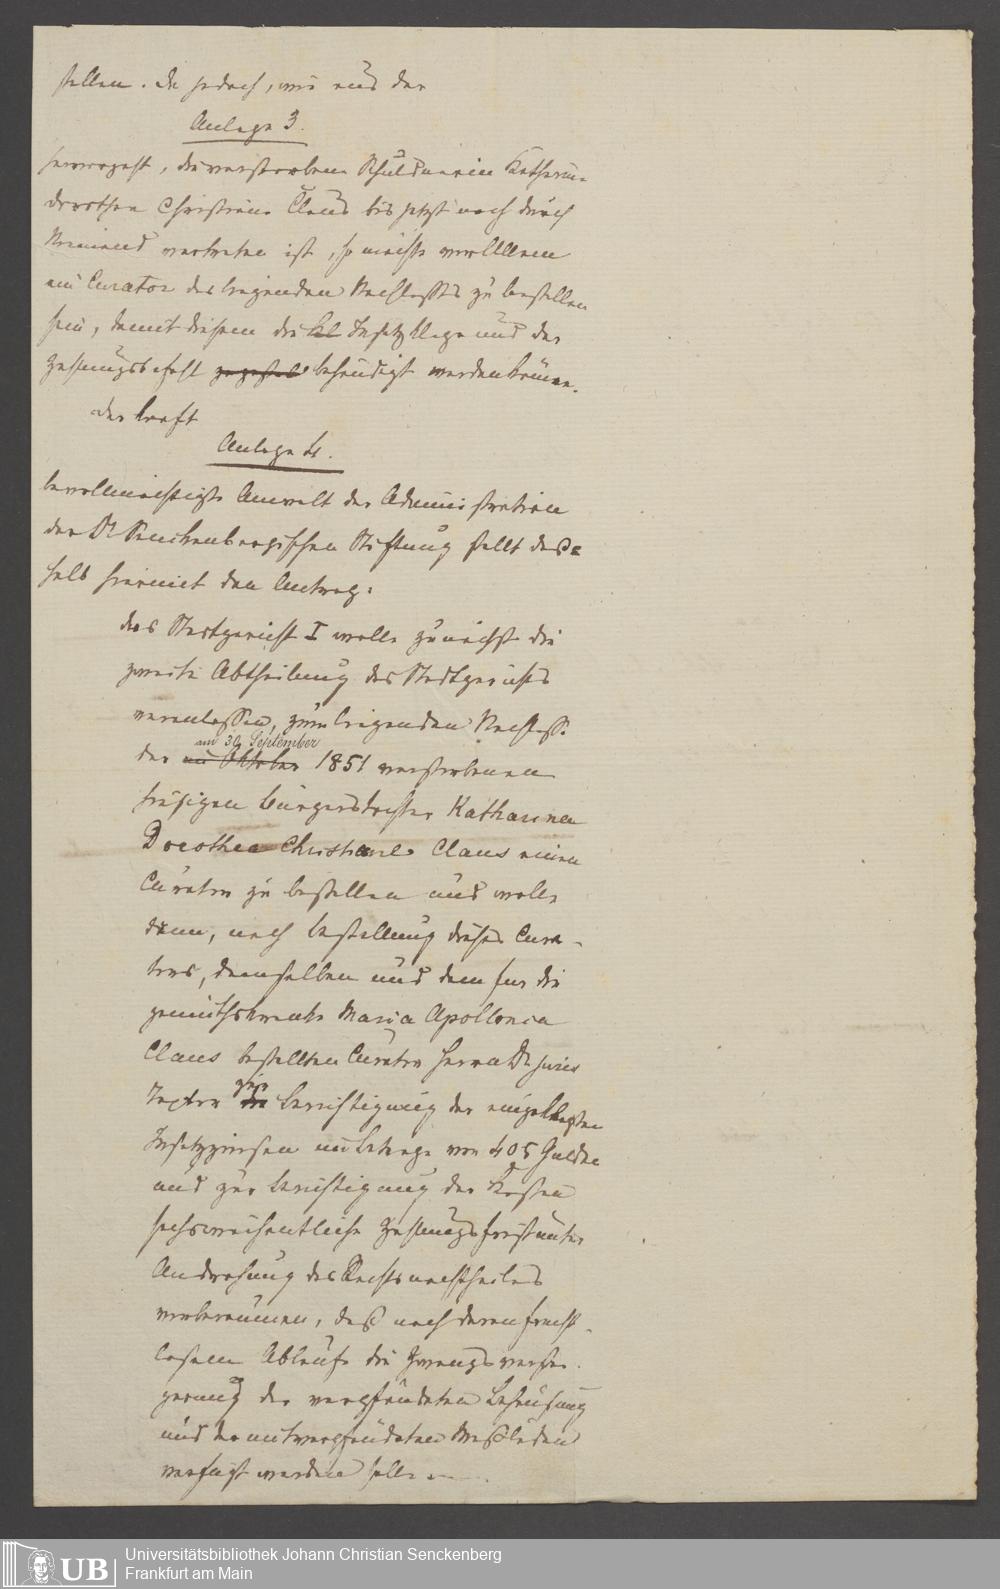 stellen. Da jedoch, wie aus der
Anlage 3.
hervorgeht, die verstorbene Schuldnerin Katharina
Dorothea Christiane Claus bis jetzt noch durch
Niemand vertreten ist, so möchte vor Allem
ein Curator des liegenden Nachlasses zu bestellen
sein, damit diesem die Kl Insatzklage und der
Zahlungsbefehl behändigt werden könne.
Der kraft
Anlage 4.
bevollmächtigte Anwalt der Administration
der Dr Senckenbergischen Stiftung stellt deß=
halb hiermit den Antrag:
das Stadtgericht I wolle zunächst die
zweite Abtheilung des Stadtgerichts
veranlassen, zum liegenden Nachlaß
am 30 September
der im Oktober 1851 verstorbenen
hiesigen Bürgerstochter Katharina
Dorothea Christiane Claus einen
Curator zu bestellen und wolle
dann, nach Bestellung dieses Cura-
tors, demselben und dem für die
gemüthskranke Maria Apollonia
Claus bestellten Curator Herrn Dr juris
Textor zur Berichtigung der eingeklagten
Insatzzinsen im Betrage von 405 Gulden
und zur Berichtigung der Kosten
sechswöchentliche Zahlungsfrist unter
Androhung des Rechtsnachtheiles
anberaumen, daß nach deren frucht-
losem Ablaufe die Zwangsverstei-
gerung der verpfändeten Behausung
und der mitverpfändeten Meßläden
verfügt werden solle
Universitätsbibliothek Johann Christian Senckenberg
Frankfurt am Main
UB